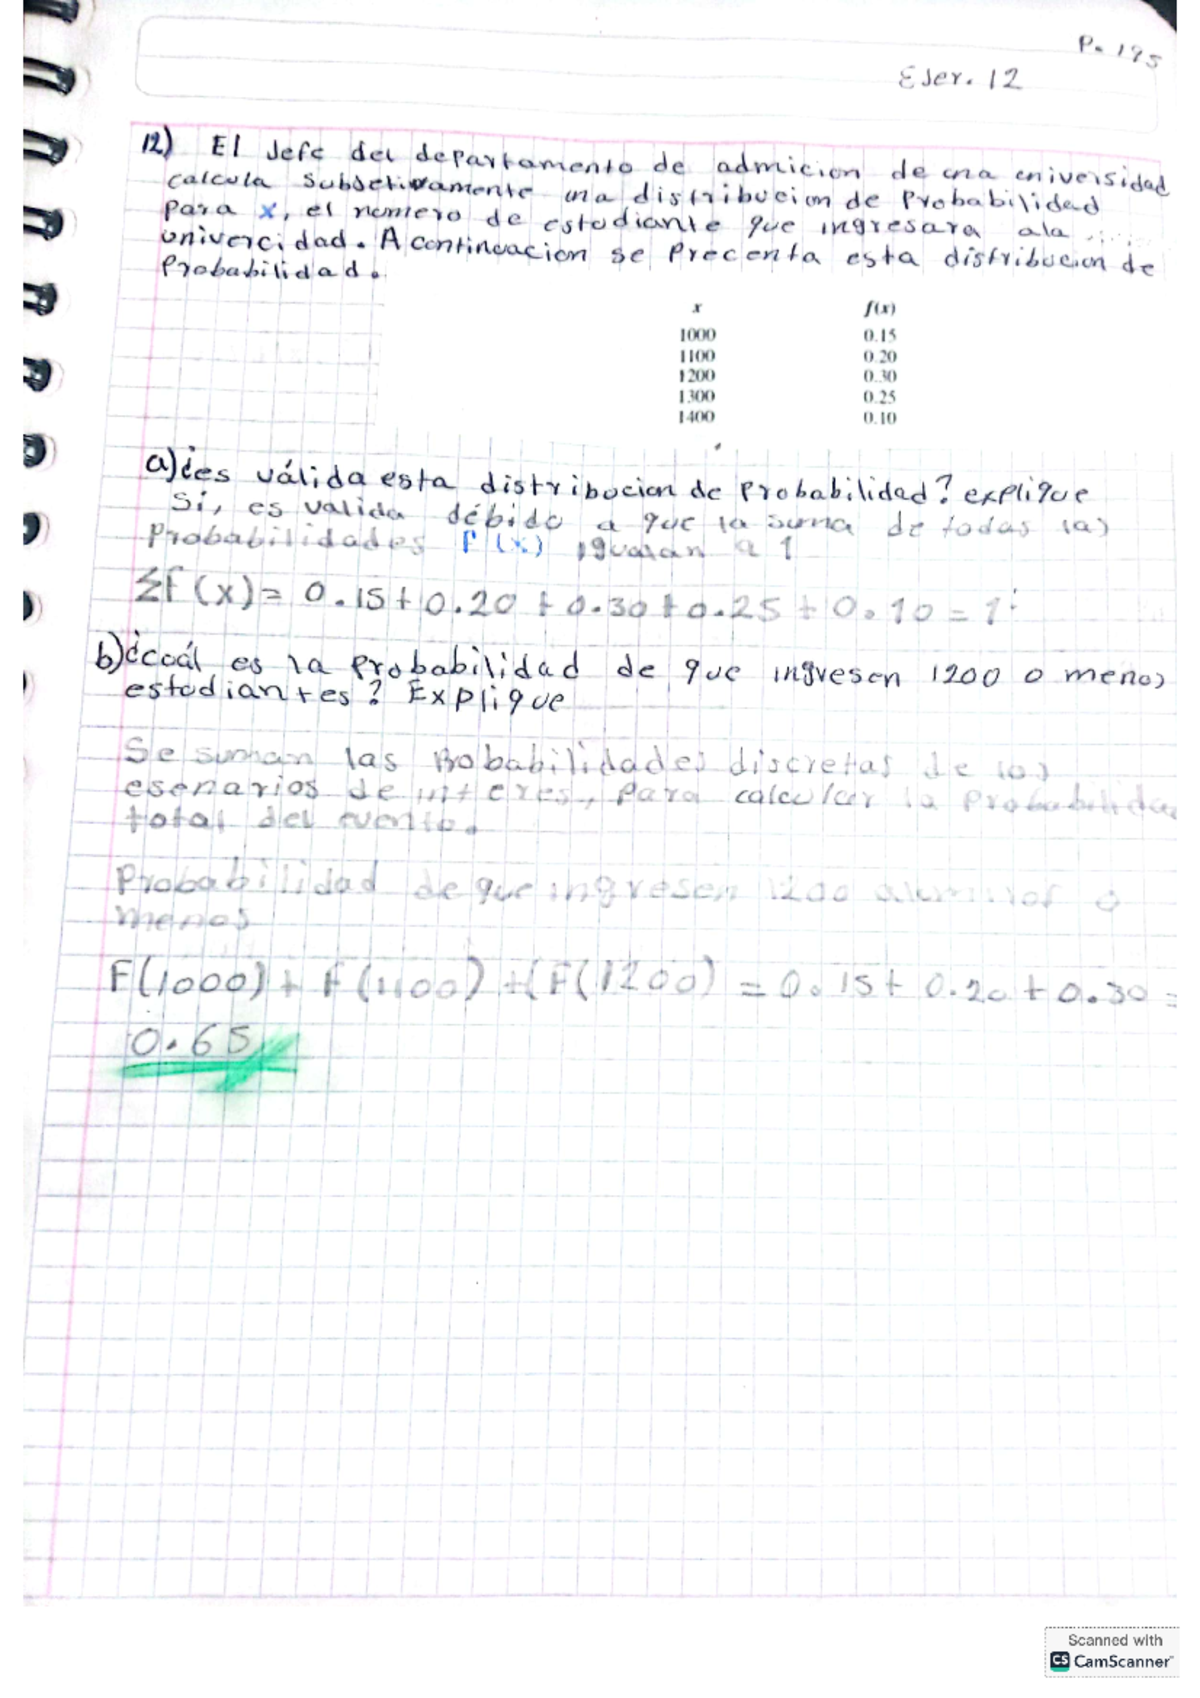 P. 195
Ejer. 12
12) El Jefe del departamento de admicion de una universidad
calcula Subjetivamente una distribucion de Probabilidad
para x, el numero de estudiante que ingresara ala
univercidad. A continuacion se Precenta esta distribucion de
Probabilidad.
x f(x)
1000 0.15
1100 0.20
1200 0.30
1300 0.25
1400 0.10
a)¿es válida esta distribucion de Probabilidad? explique
Si, es valida débido a que la suma de todas las
Probabilidades f(x) igualan a 1
Σf(x)= 0.15+0.20+0.30+0.25+0.10=1
b)¿cuál es la Probabilidad de que ingresen 1200 o menos
estudiantes? Explique
Se suman las Probabilidades discretas de los
esenarios de interes, Para calcular la Probabilidad
total del evento.
Probabilidad de que ingresen 1200 alumnos o
menos
F(1000)+ F(1100)+(F(1200) = 0.15+ 0.20+0.30=
0.65
Scanned with
CS CamScanner